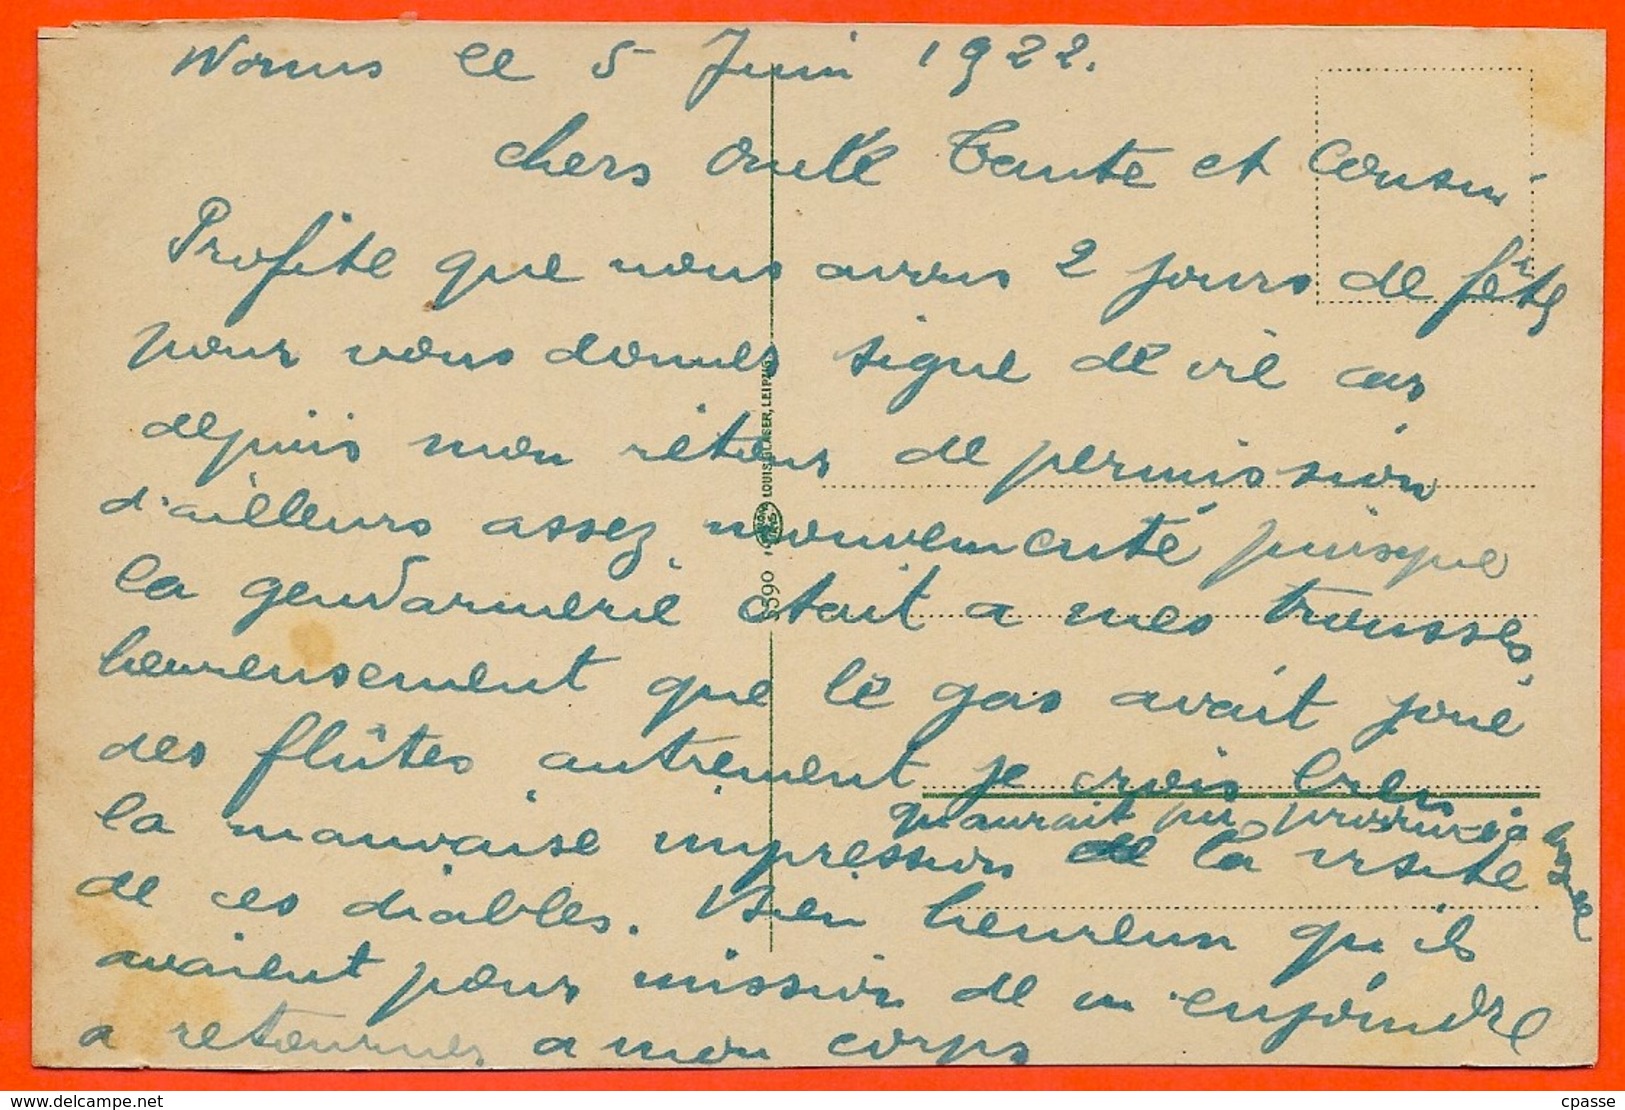 Worms le 5 Juin 1922.
chers Oncle Tante et Cousin
Profite que nous avons 2 jours de fête
pour vous donner signe de vie car
depuis mon retour de permission
d'ailleurs assez mouvementé puisque
la gendarmerie était a mes trousses,
heureusement que le gas avait joué
des flûtes autrement je crois bien
qu'aurait pu
la mauvaise impression de la visite
de ces diables. Bien heureux qu'ils
avaient pour mission de m'enjoindre
a retourner a mon corps
5590
LOUIS GLASER, LEIPZIG
cpasse
delcampe.net